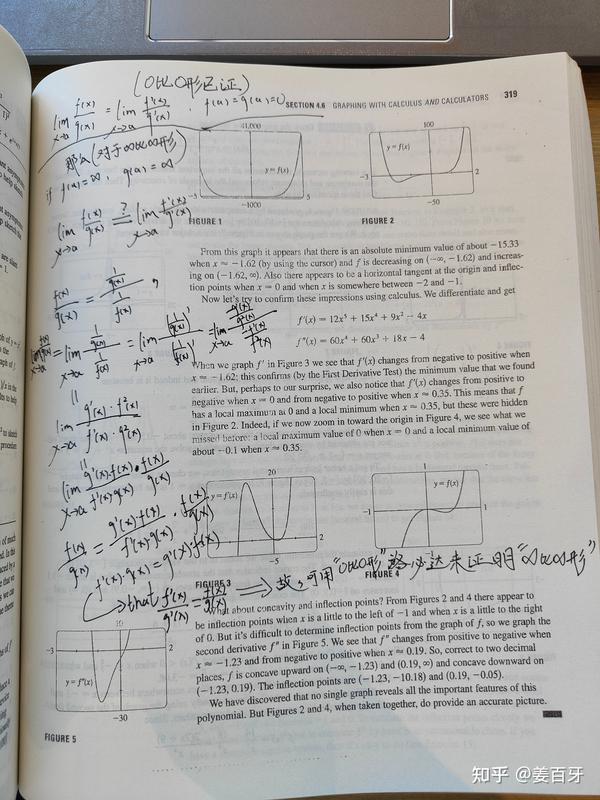 (0比0形已证)
lim x→a f(x)/g(x) = lim x→a f'(x)/g'(x), f(a)=g(a)=0
SECTION 4.6 GRAPHING WITH CALCULUS AND CALCULATORS 319
那么(对于∞比∞形)
if f(a)=∞, g(a)=∞
lim x→a f(x)/g(x) ?= lim x→a f'(x)/g'(x)
41,000
y = f(x)
-3
5
-1000
FIGURE 1
100
y = f(x)
-3
2
-50
FIGURE 2
From this graph it appears that there is an absolute minimum value of about -15.33
when x ≈ -1.62 (by using the cursor) and f is decreasing on (-∞, -1.62) and increas-
ing on (-1.62, ∞). Also there appears to be a horizontal tangent at the origin and inflec-
tion points when x = 0 and when x is somewhere between -2 and -1.
Now let's try to confirm these impressions using calculus. We differentiate and get
f'(x) = 12x⁵ + 15x⁴ + 9x² - 4x
f"(x) = 60x⁴ + 60x³ + 18x - 4
When we graph f' in Figure 3 we see that f'(x) changes from negative to positive when
x ≈ -1.62; this confirms (by the First Derivative Test) the minimum value that we found
earlier. But, perhaps to our surprise, we also notice that f'(x) changes from positive to
negative when x = 0 and from negative to positive when x ≈ 0.35. This means that f
has a local maximum at 0 and a local minimum when x ≈ 0.35, but these were hidden
in Figure 2. Indeed, if we now zoom in toward the origin in Figure 4, we see what we
missed before: a local maximum value of 0 when x = 0 and a local minimum value of
about -0.1 when x ≈ 0.35.
f(x)/g(x) = (1/g(x))/(1/f(x)),
lim x→a f(x)/g(x) = lim x→a (1/g(x))/(1/f(x)) = lim x→a (1/g(x))'/(1/f(x))'
lim x→a g'(x)·f²(x)/f'(x)·g²(x)
lim x→a g'(x)·f(x)/f'(x)·g(x) · f(x)/g(x)
f(x)/g(x) = g'(x)·f(x)/f'(x)·g(x) · f(x)/g(x)
f'(x)·g(x) = g'(x)·f(x)
that f'(x)/g'(x) = f(x)/g(x) ⟹ 故,可用"0比0形"洛必达来证明"∞比∞形"
20
y = f'(x)
2
-5
FIGURE 3
1
y = f(x)
-1
1
-1
FIGURE 4
What about concavity and inflection points? From Figures 2 and 4 there appear to
be inflection points when x is a little to the left of -1 and when x is a little to the right
of 0. But it's difficult to determine inflection points from the graph of f, so we graph the
second derivative f" in Figure 5. We see that f" changes from positive to negative when
x ≈ -1.23 and from negative to positive when x ≈ 0.19. So, correct to two decimal
places, f is concave upward on (-∞, -1.23) and (0.19, ∞) and concave downward on
(-1.23, 0.19). The inflection points are (-1.23, -10.18) and (0.19, -0.05).
We have discovered that no single graph reveals all the important features of this
polynomial. But Figures 2 and 4, when taken together, do provide an accurate picture.
10
-3
2
y = f"(x)
-30
FIGURE 5
知乎 @姜百牙